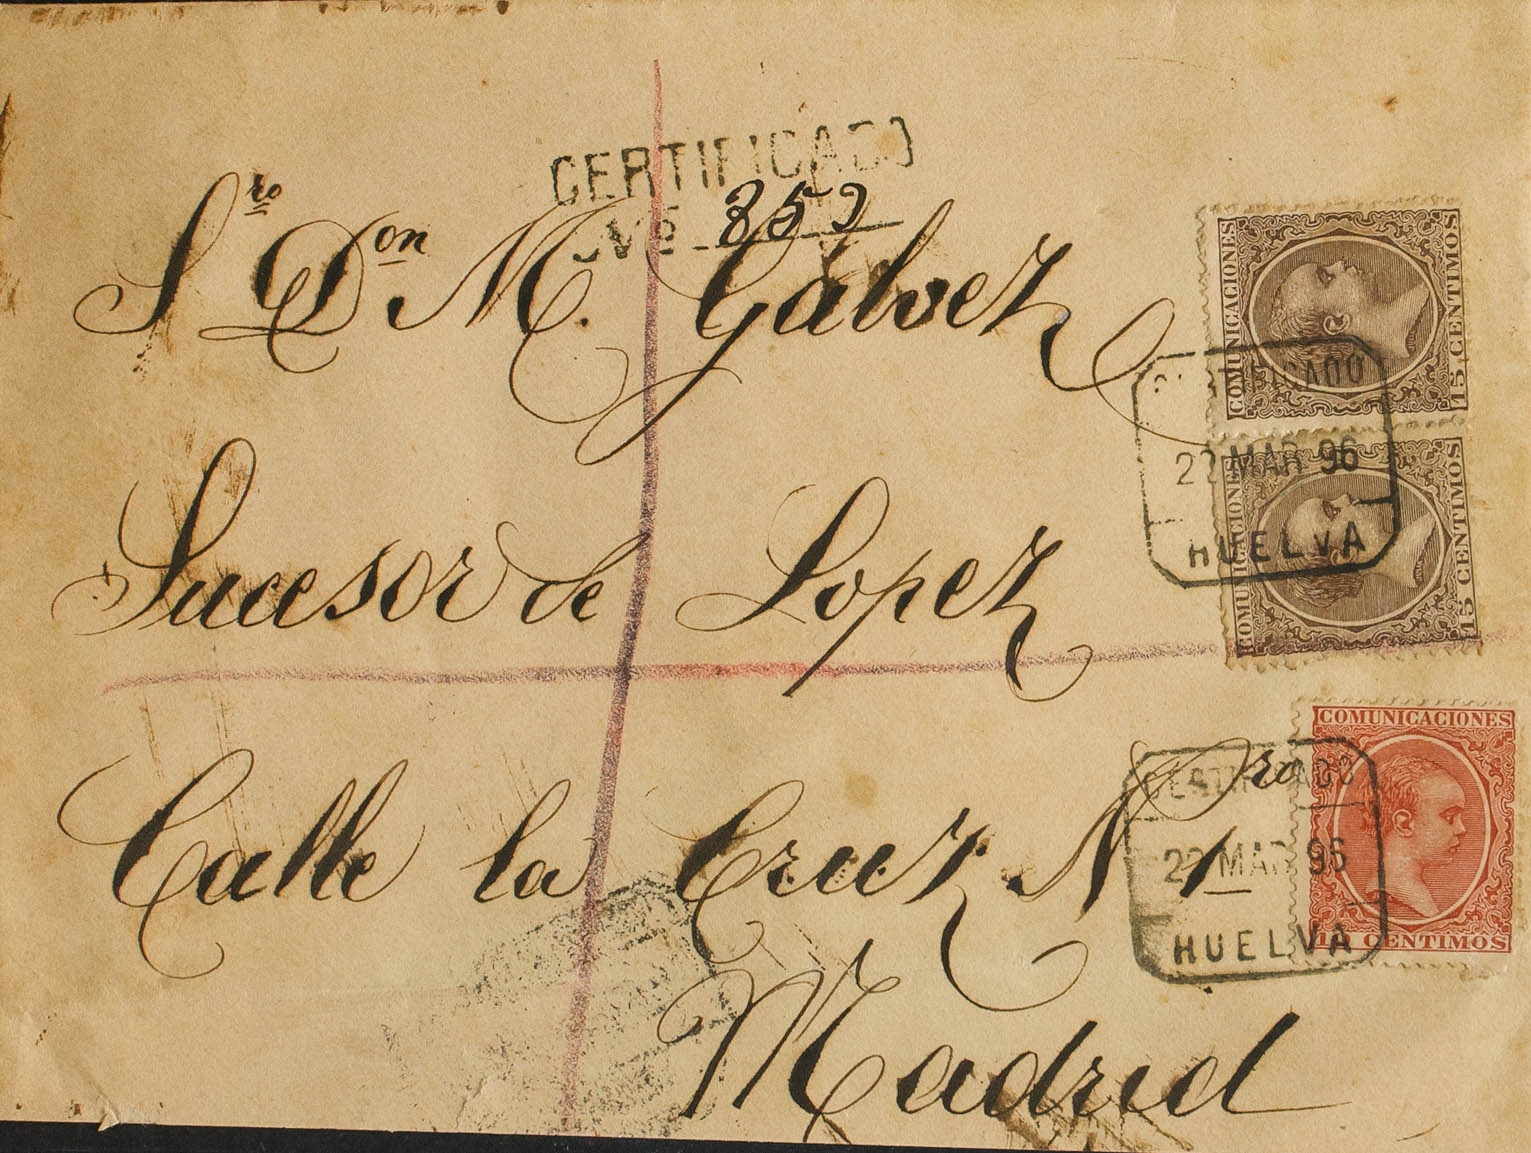 CERTIFICADO
Nº 352
Sro Don M. Gálvez
Sucesor de Lopez
Calle la Cruz Nro 1
Madrid
COMUNICACIONES
15 CENTIMOS
CERTIFICADO
22 MAR 96
HUELVA
COMUNICACIONES
15 CENTIMOS
COMUNICACIONES
10 CENTIMOS
CERTIFICADO
22 MAR 96
HUELVA